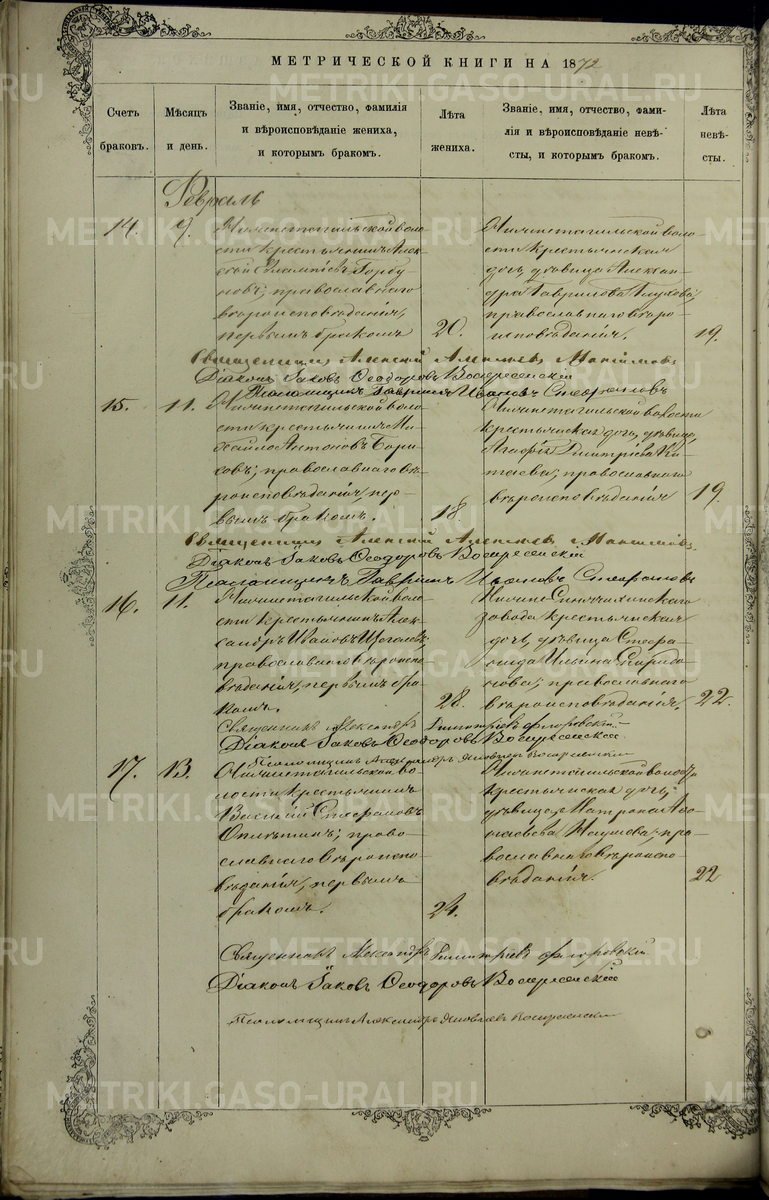 МЕТРИЧЕСКОЙ КНИГИ НА 1872
Счетъ браковъ.
Мѣсяцъ и день.
Званіе, имя, отчество, фамилія
и вѣроисповѣданіе жениха,
и которымъ бракомъ.
Лѣта жениха.
Званіе, имя, отчество, фами-
лія и вѣроисповѣданіе невѣ-
сты, и которымъ бракомъ.
Лѣта невѣ-
сты.
Февраль
14.
9.
Нижнетагильской воло-
сти крестьянинъ Алек-
сѣй Горбу-
новъ; православнаго
вѣроисповѣданія,
первымъ бракомъ
20.
Нижнетагильской воло-
сти крестьянская
дочь, дѣвица Алексан-
дра Гаврилова Глухова;
православнаго вѣро-
исповѣданія.
19.
Священникъ Алексій Алексѣевъ Максимовъ
Діаконъ Іаковъ Ѳеодоровъ Воскресенскій
Псаломщикъ Гавріилъ Ивановъ Стефановъ
15.
11.
Нижнетагильской воло-
сти крестьянинъ Ми-
хайло Антоновъ Бори-
совъ; православнаго вѣ-
роисповѣданія, пер-
вымъ бракомъ.
18.
Нижнетагильской волости
крестьянская дочь, дѣвица
Агафія Димитріева Ки-
таева; православнаго
вѣроисповѣданія
19.
Священникъ Алексій Алексѣевъ Максимовъ
Діаконъ Іаковъ Ѳеодоровъ Воскресенскій
Псаломщикъ Гавріилъ Ивановъ Стефановъ
16.
11.
Нижнетагильской воло-
сти крестьянинъ Алек-
сандръ Ивановъ Щеголевъ,
православнаго вѣроиспо-
вѣданія, первымъ бра-
комъ.
28.
Нижне Синячихинскаго
завода крестьянская
дочь, дѣвица Стефа-
нида Ильина Спиридо-
нова; православнаго
вѣроисповѣданія.
22.
Священникъ Александръ Димитріевъ Флоровскій
Діаконъ Іаковъ Ѳеодоровъ Воскресенскій
Псаломщикъ Александръ Яковлевъ Воскресенскій
17.
13.
Нижнетагильской во-
лости крестьянинъ
Василій Стефановъ
право-
славнаго вѣроиспо-
вѣданія, первымъ
бракомъ.
24.
Нижнетагильской волости
крестьянская дочь,
дѣвица Матрона
Наумова; пра-
вославнаго вѣроиспо-
вѣданія.
22
Священникъ Александръ Димитріевъ Флоровскій
Діаконъ Іаковъ Ѳеодоровъ Воскресенскій
Псаломщикъ Александръ Яковлевъ Воскресенскій
METRIKI.GASO-URAL.RU